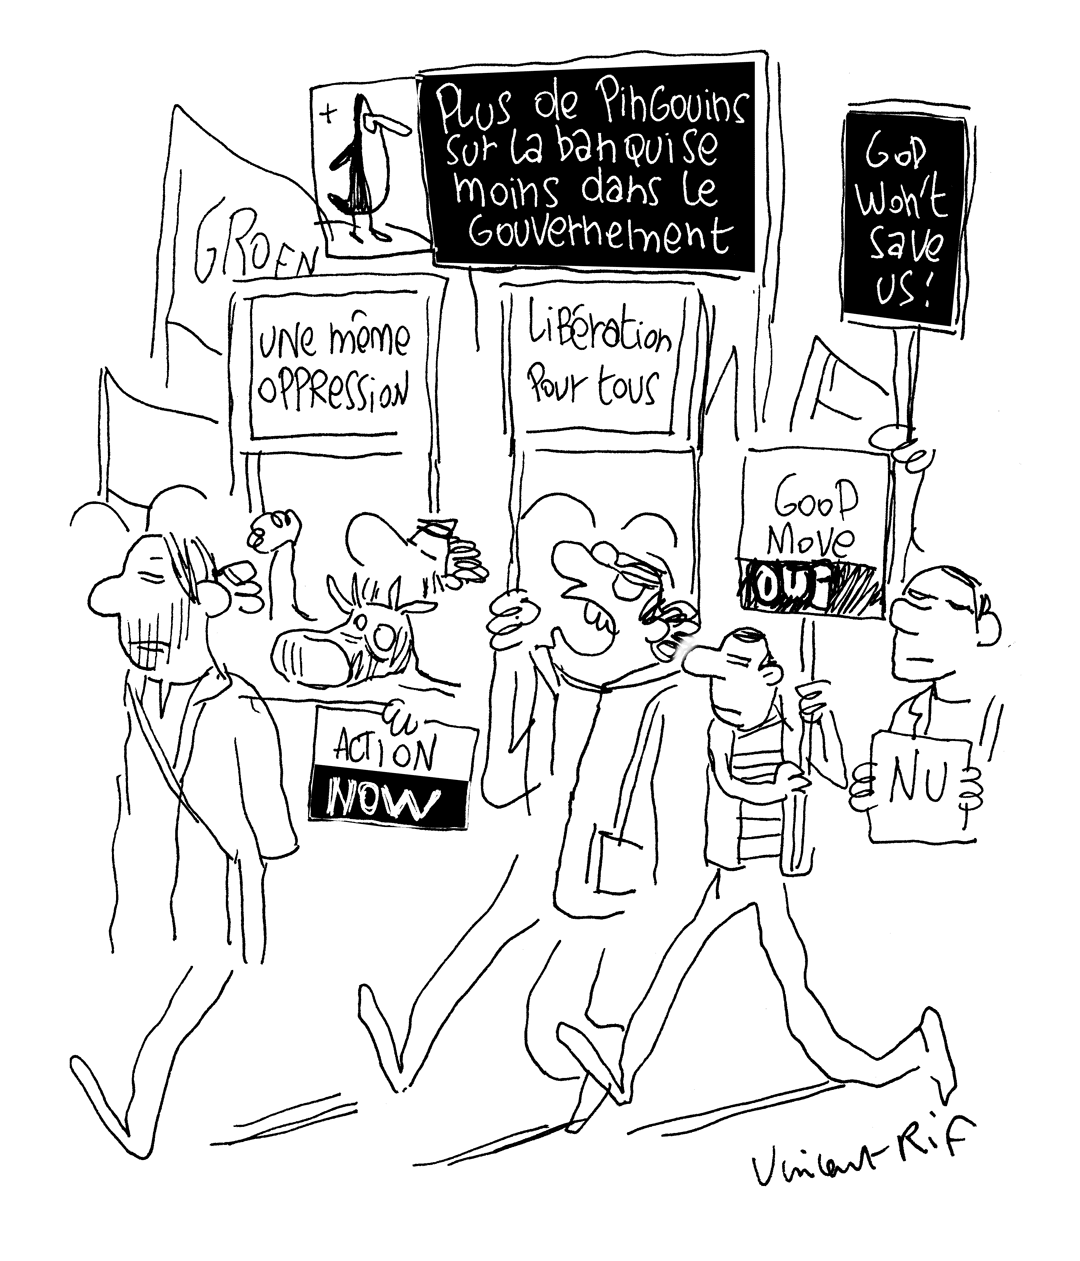 +
PLUS de PinGouins
sur la banquise
moins dans le
Gouvernement
GOD
Won't
save
us!
GROEN
une même
oppression
Libération
Pour tous
GooD
Move
OUI
ACTION
NOW
NU
Vincent Rif